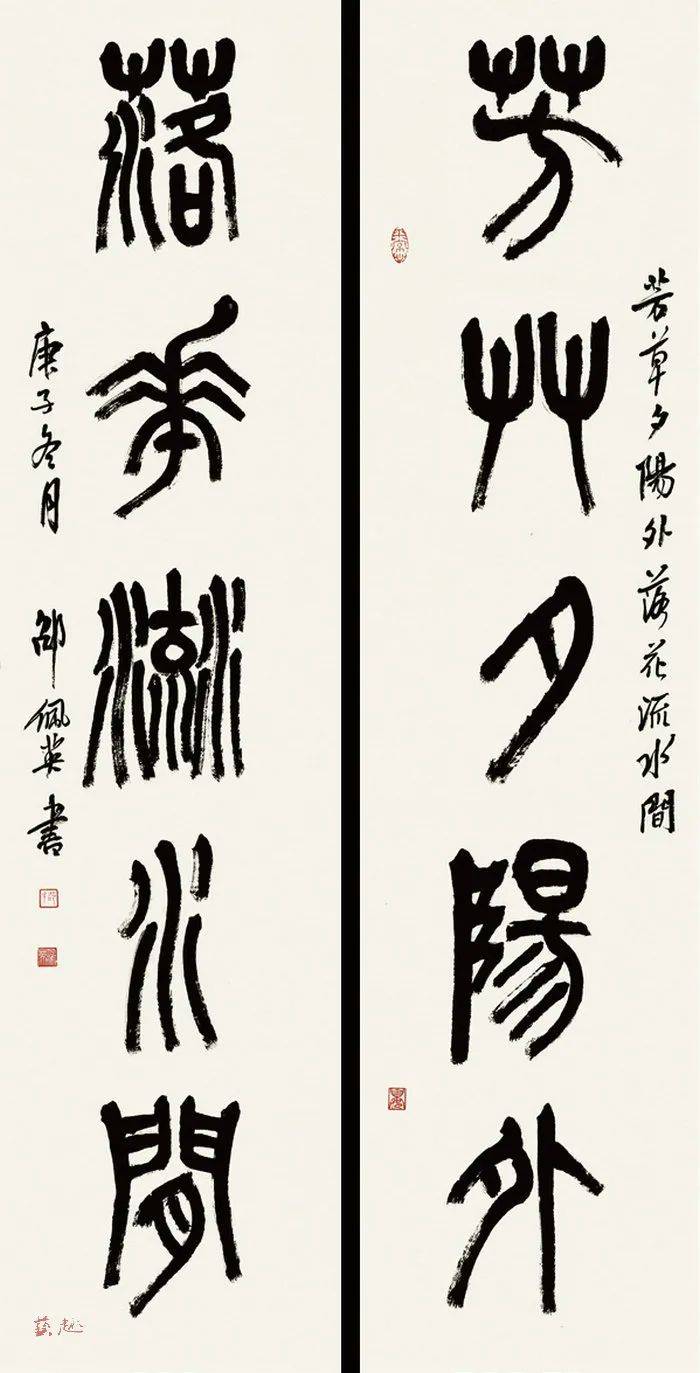 芳艸夕陽外
芳草夕陽外落花流水間
落華流水間
庚子冬月 邵佩英書